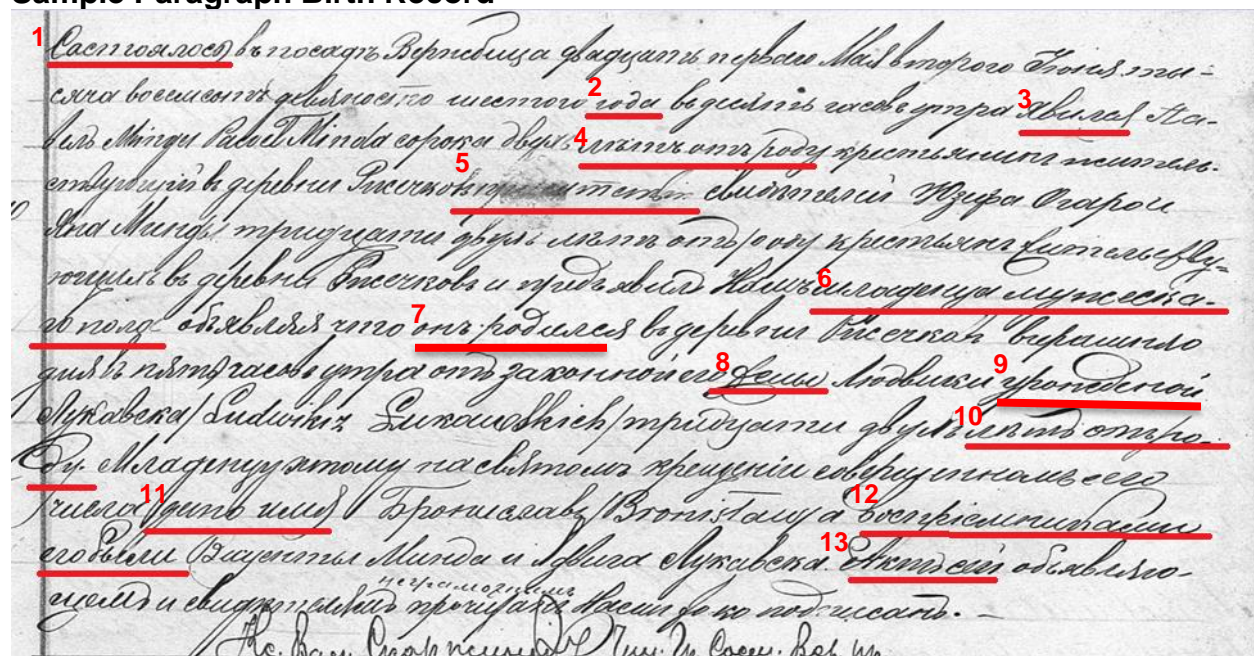 Sample Paragraph Birth Record
1 Состоялось въ посадѣ двадцать перваго Мая второго Іюня ты-
2 3 сяча восемсотъ девяносто шестого года въ десять часовъ утра явился Па-
4 велъ Минда Paweł Minda сорока двухъ лѣтъ отъ роду крестьянинъ жительс-
5 твующій въ деревни свидѣтелей Юзефа
Яна Минды тридцати двухъ лѣтъ отъ роду крестьянъ жительству-
6 ющихъ въ деревни и предъявилъ Намъ младенца мужеска-
7 го пола объявляя что онъ родился въ деревни вчерашняго
8 9 дня въ пять часовъ утра отъ законной его жены Людвики урожденой
10 Лукавска /Ludwiki z Łukawskich/ тридцати двухъ лѣтъ отъ ро-
ду. Младенцу этому на святомъ крещеніи совершенномъ сего
11 12 числа дано имя Бронислав /Bronisława/ а воспріемниками
13 его были Викентый Минда и Ядвига Лукавска. Актъ сей объявляю-
неграмотнымъ
щему и свидѣтелямъ прочитанъ Нами подписанъ.-